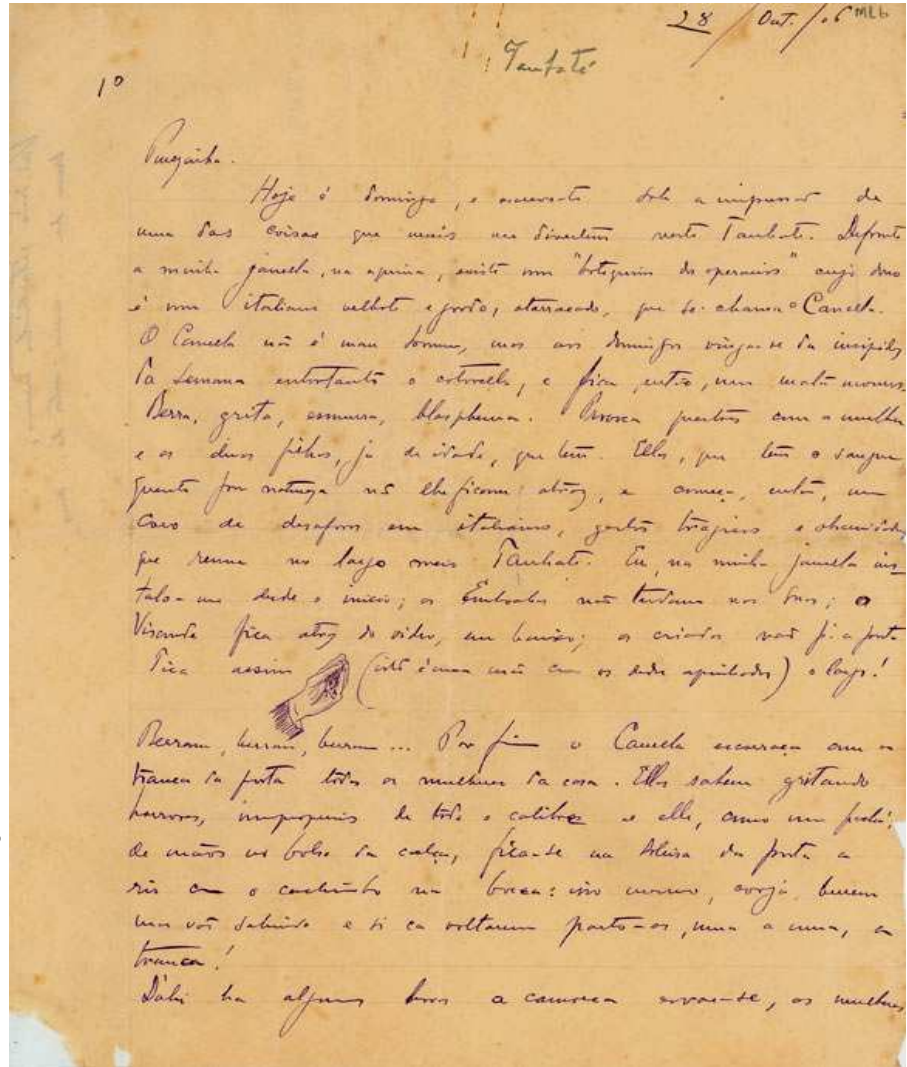 28 / Out. / 06 MLb
Taubaté
1º
Purezinha.
Hoje é domingo, e escrevo-te sob a impressão de
uma das coisas que mais me divertem nesta Taubaté. Defronte
a minha janella, na esquina, existe um "botequim de operarios" cujo dono
é um italiano velhote e gordo, atarracado, que se chama o Cancela.
O Cancela não é mau homem, mas aos domingos vinga-se da insipidez
da semana entortando o cotovello, e fica, então, um
Berra, grita, esmurra, blasphema. Provoca questões com a mulher
e os duas filhas, já de idade, que tem. Ellas, que têm o sangue
quente por natureza não lhe ficam atraz, e começa, então, um
coro de desaforos em italiano, gestos tragicos e obscenidades
que reune no largo meia Taubaté. Eu, na minha janella ins-
talo-me desde o inicio; os não tardam nas suas; o
Visconde fica atraz do vidro, em baixo; os criados vão p.ª a porta
Fica assim (isto é uma mão com os dedos apinhados) o largo!
Berram, berram, berram... Por fim o Cancela escorraça com a
tranca da porta todas as mulheres da casa. Ellas sahem gritando
horrores, improperios de todo o calibre e elle, como um pachá,
de mãos no bolso da calça, fica-se na soleira da porta a
rir com o cachimbo na bocca: isso mesmo, corja, berrem
mas vão sahindo e si cá voltarem parto-as, uma a uma, a
tranca!
Dahi ha algumas horas a camoeca esvae-se, as mulheres